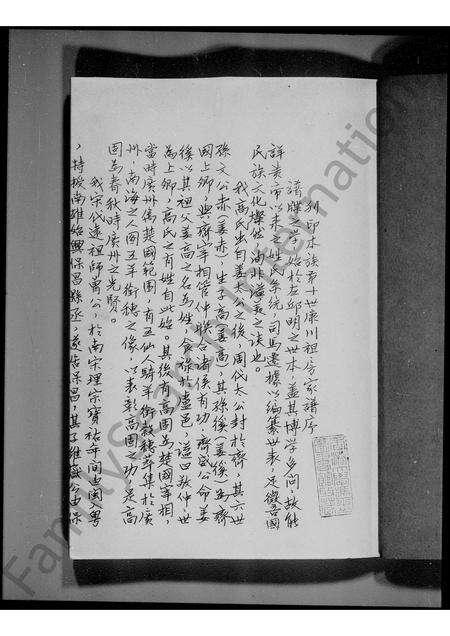 列印本族第十世康川祖房家譜序
譜牒之作始於左邱明之世本，蓋其博學多問，故能
詳黃帝以來之姓氏系統，司馬遷據以編纂世表，足徵吾國
民族文化燦然，洵非溢美之談也。
我高氏出自姜太公之後，周代太公封於齊，其六世
孫文公赤（姜赤），生子高（姜高），其孫傒（姜傒）為齊
國上卿，與齊宰相管仲聯合諸侯有功，齊威公命姜
傒以其祖父姜高之名為姓，食祿於盧邑，謚曰敬仲，世
為上卿，高氏之有姓自此始。其後有高固為楚國宰相，
當時廣州僑楚國範圍，有五仙人騎羊銜穀穗萃集於廣
州，南海之人圖五羊銜穗之像，以表彰高固之功，是高
固為春秋時廣州之先賢。
我宋代遠祖師萬公，於南宋理宗寶祐年間由閩入粵
，特授南雄始興保昌縣丞，莅任保昌，其子維盛公由保
FamilySearch International